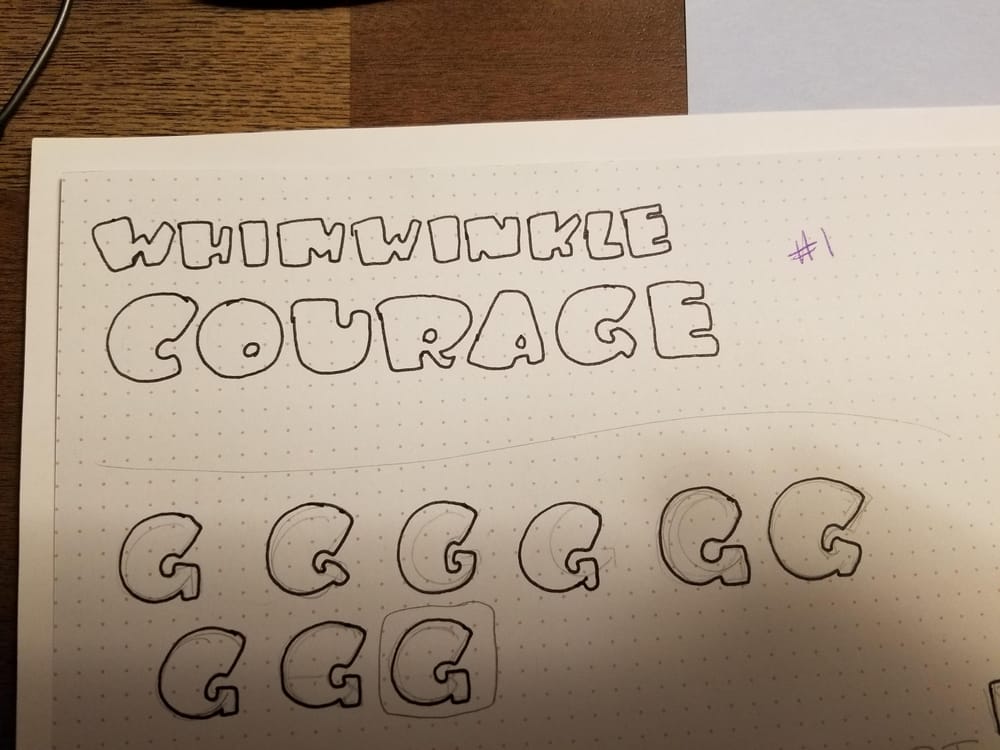 WHIMWINKLE #1
COURAGE
G G G G G G
G G G